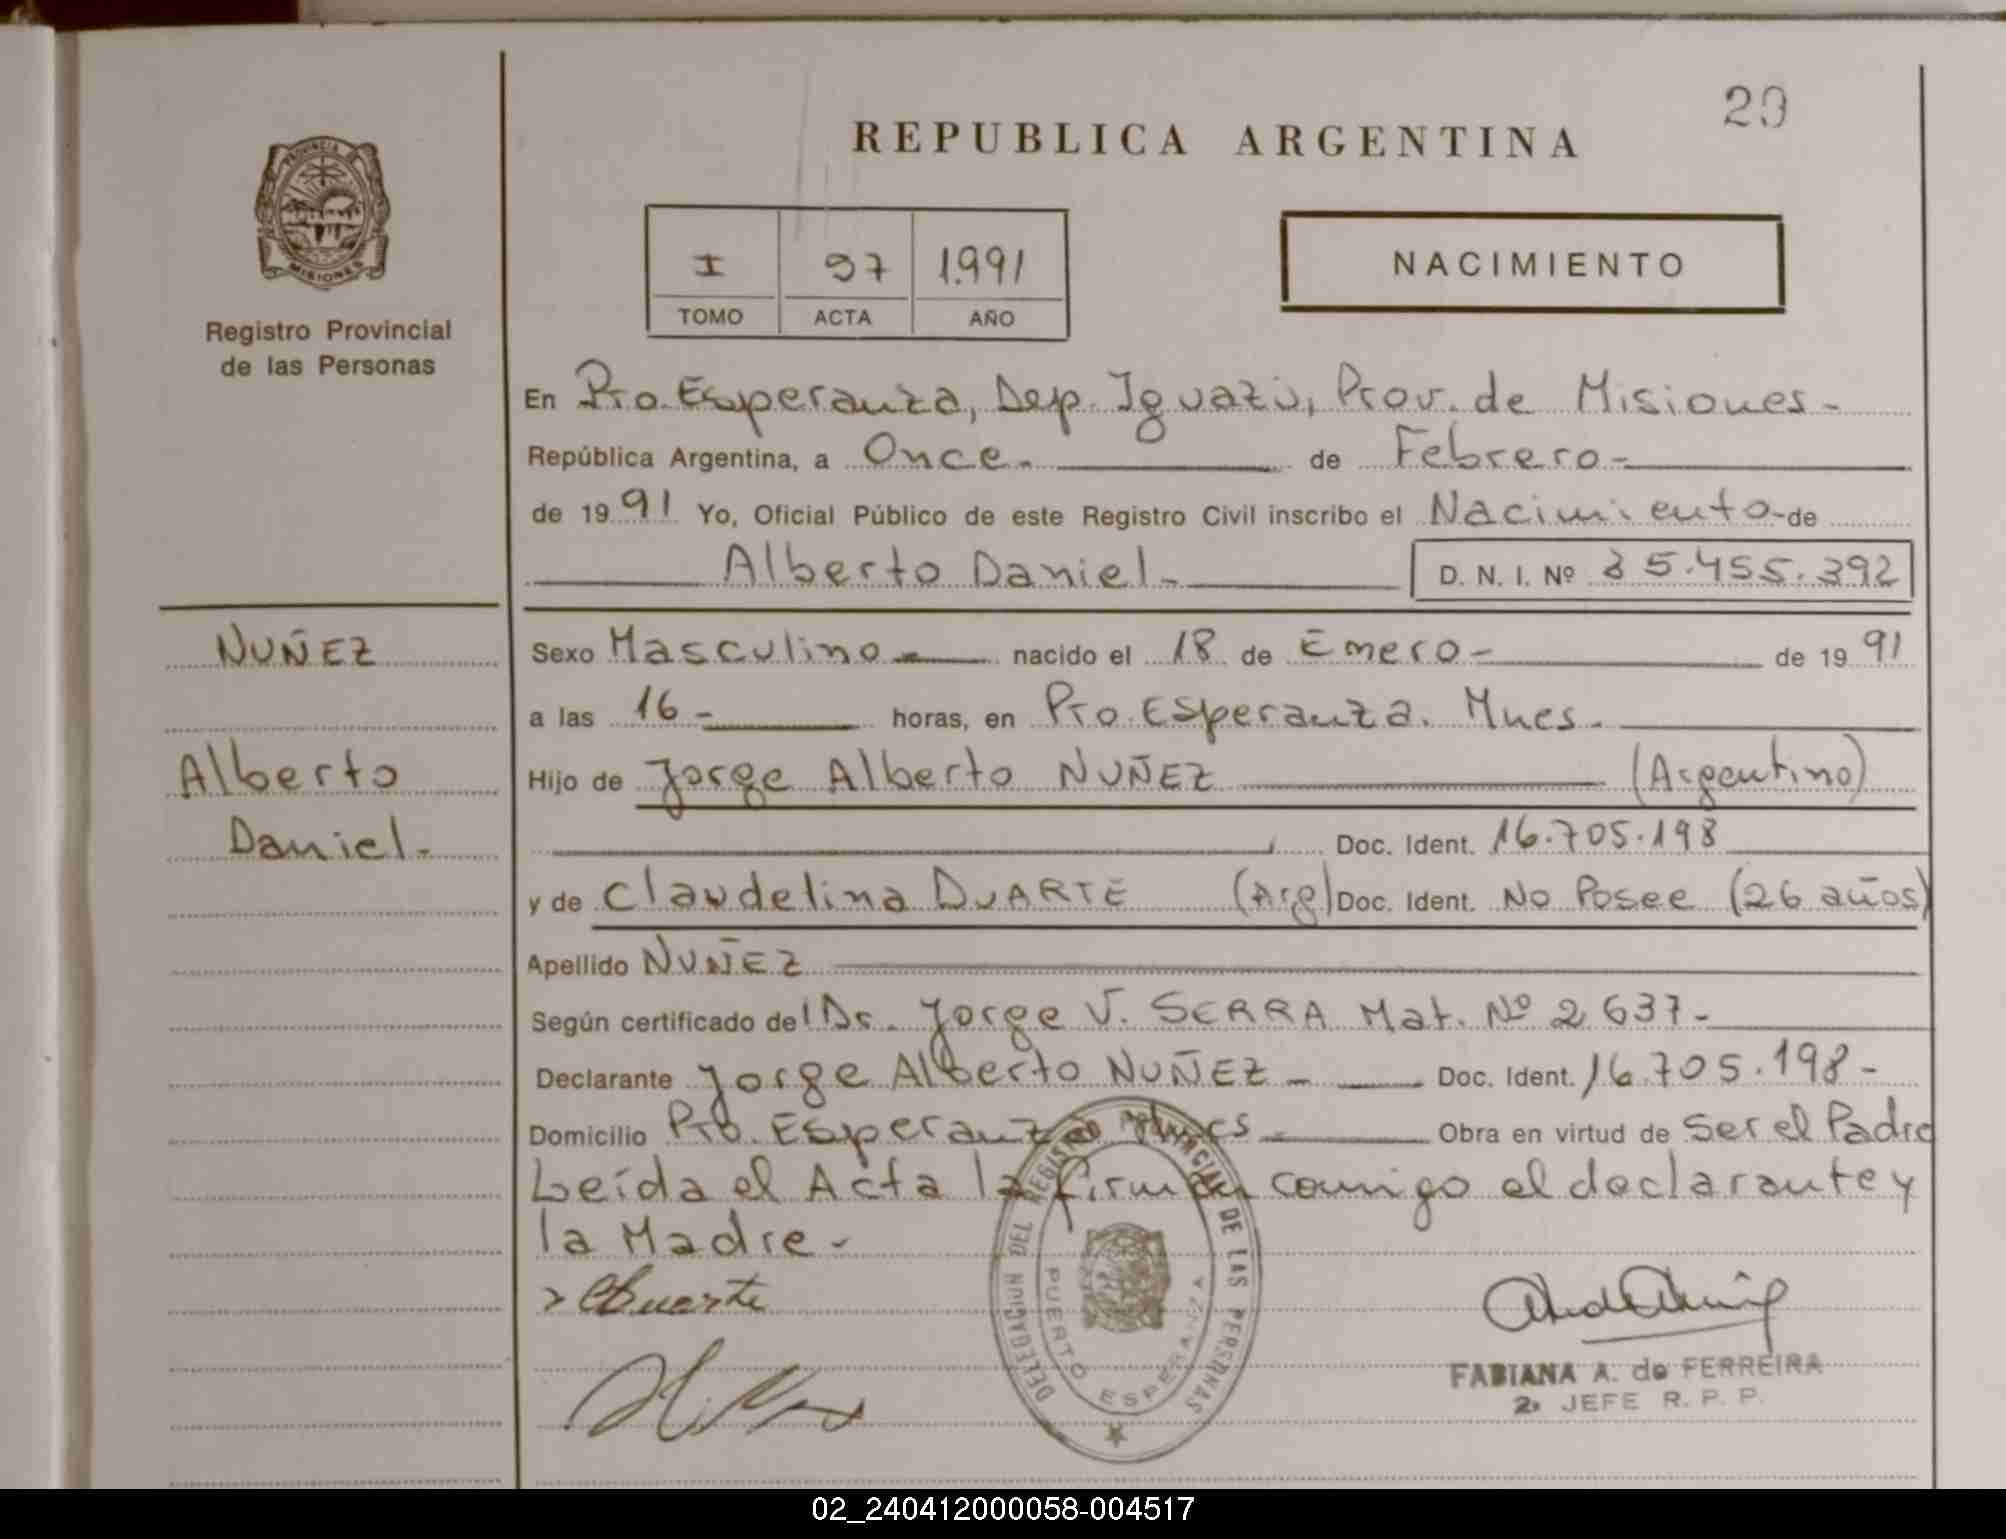 29
REPUBLICA ARGENTINA
PROVINCIA DE
MISIONES
Registro Provincial
de las Personas
I 97 1.991
TOMO ACTA AÑO
NACIMIENTO
En Pto. Esperanza, Dep. Iguazú, Prov. de Misiones-
República Argentina, a Once.- de Febrero-
de 1991 Yo, Oficial Público de este Registro Civil inscribo el Nacimiento-de
Alberto Daniel.- D. N. I. Nº 35.455.392
NUÑEZ
Alberto
Daniel.-
Sexo Masculino- nacido el 18 de Enero- de 1991
a las 16- horas, en Pto. Esperanza. Mnes.-
Hijo de Jorge Alberto NUÑEZ (Argentino)
Doc. Ident. 16.705.198
y de Claudelina DUARTE (Arg) Doc. Ident. No Posee (26 años)
Apellido NUÑEZ
Según certificado del Dr. Jorge V. SERRA Mat. Nº 2637-
Declarante Jorge Alberto NUÑEZ- Doc. Ident. 16.705.198-
Domicilio Pto. Esperanza Mnes- Obra en virtud de Ser el Padre
Leída el Acta la firman comigo el declarante y
la Madre-
DELEGACION DEL REGISTRO PROVINCIAL DE LAS PERSONAS
PUERTO ESPERANZA
FABIANA A. de FERREIRA
2º JEFE R. P. P.
02_240412000058-004517